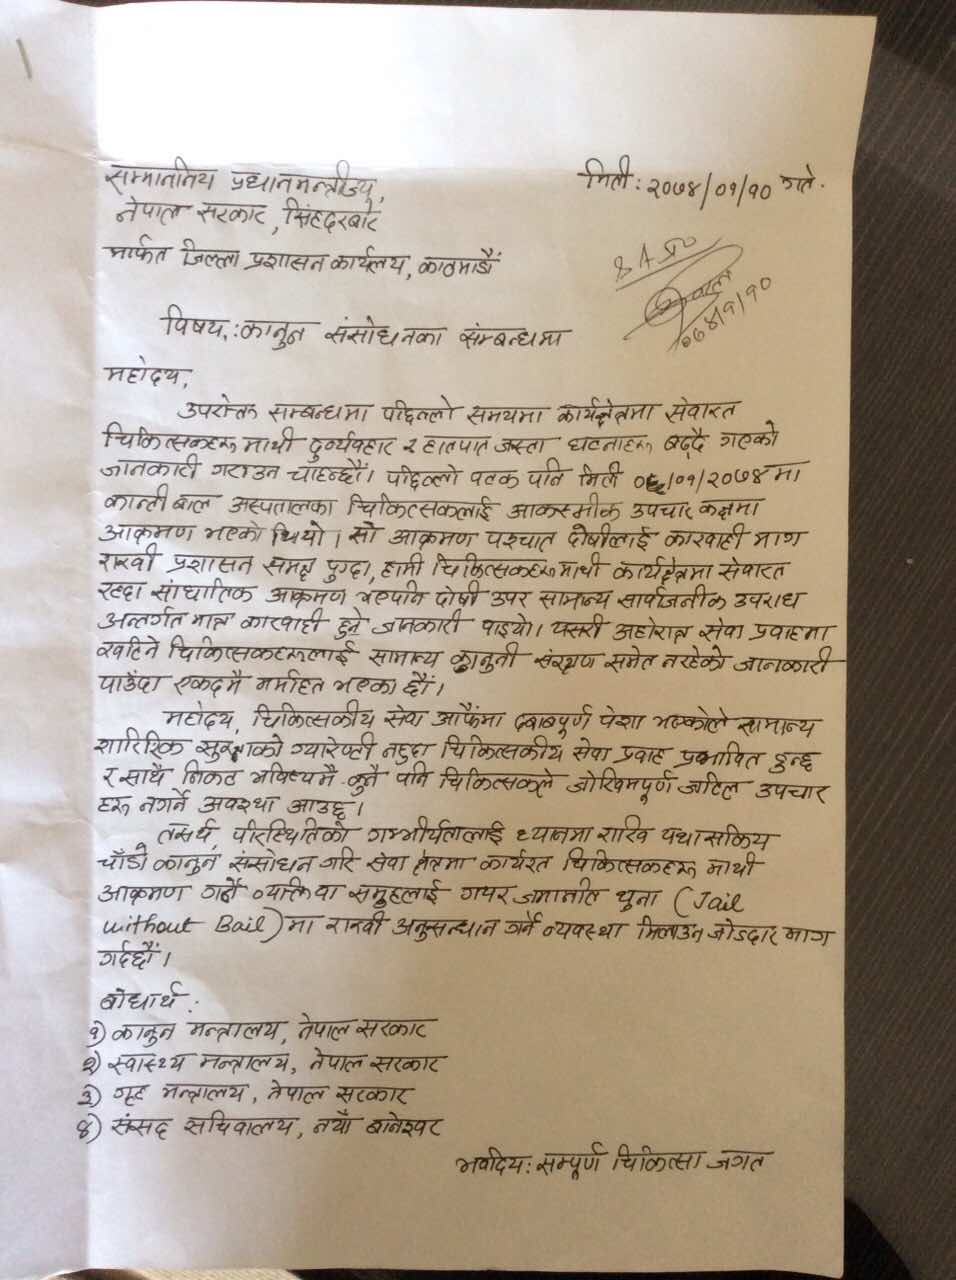 सम्मानिय प्रधानमन्त्रीज्यू,
मिती: २०७४/०१/१० गते.
नेपाल सरकार, सिंहदरबार
मार्फत जिल्ला प्रशासन कार्यलय, काठमाडौं
७४/१/१०
विषय: कानुन संसोधनका संम्बन्धमा
महोदय,
उपरोक्त सम्बन्धमा पछिल्लो समयमा कार्यक्षेत्रमा सेवारत
चिकित्सकहरू माथी दुर्व्यवहार र हातपात जस्ता घटनाहरू बढ्दै गएको
जानकारी गराउन चाहन्छौं। पछिल्लो पटक पनि मिती /०१/२०७४ मा
कान्ती बाल अस्पतालका चिकित्सकलाई आकस्मीक उपचार कक्षमा
आक्रमण भएको थियो। सो आक्रमण पश्चात दोषीलाई कारवाही माग
राखी प्रशासन समक्ष पुग्दा, हामी चिकित्सकहरू माथी कार्यक्षेत्रमा सेवारत
रहदा सांघातिक आक्रमण भएपनि दोषी उपर सामान्य सार्वजनीक उपराध
अन्तर्गत मात्र कारवाही हुने जानकारी पाइयो। यसरी अहोरात्र सेवा प्रवाहमा
खटिने चिकित्सकहरूलाई सामान्य कानुनी संरक्षण समेत नरहेको जानकारी
पाउँदा एकदमै मर्माहत भएका छौं।
महोदय, चिकित्सकीय सेवा आफैंमा दबाबपूर्ण पेशा भएकोले सामान्य
शारिरिक सुरक्षाको ग्यारेण्टी नहुदा चिकित्सकीय सेवा प्रवाह प्रभावित हुन्छ
र साथै निकट भविष्यमै कुनै पनि चिकित्सकले जोखिमपूर्ण जटिल उपचार
हरू नगर्ने अवस्था आउछ।
तसर्थ, परिस्थितिको गम्भीर्यतालाई ध्यानमा राखि यथा सकिय
चाँडो कानुन संसोधन गरि सेवा क्षेत्रमा कार्यरत चिकित्सकहरू माथी
आक्रमण गर्ने व्यक्ति वा समुहलाई गयर जमानीत थुना (Jail
without Bail) मा राखी अनुसन्धान गर्ने व्यवस्था मिलाउन जोडदार माग
गर्दछौं।
बोधार्थ:
१) कानुन मन्त्रालय, नेपाल सरकार
२) स्वास्थ्य मन्त्रालय, नेपाल सरकार
३) गृह मन्त्रालय, नेपाल सरकार
४) संसद सचिवालय, नयाँ बानेश्वर
भवदिय: सम्पूर्ण चिकित्सा जगत